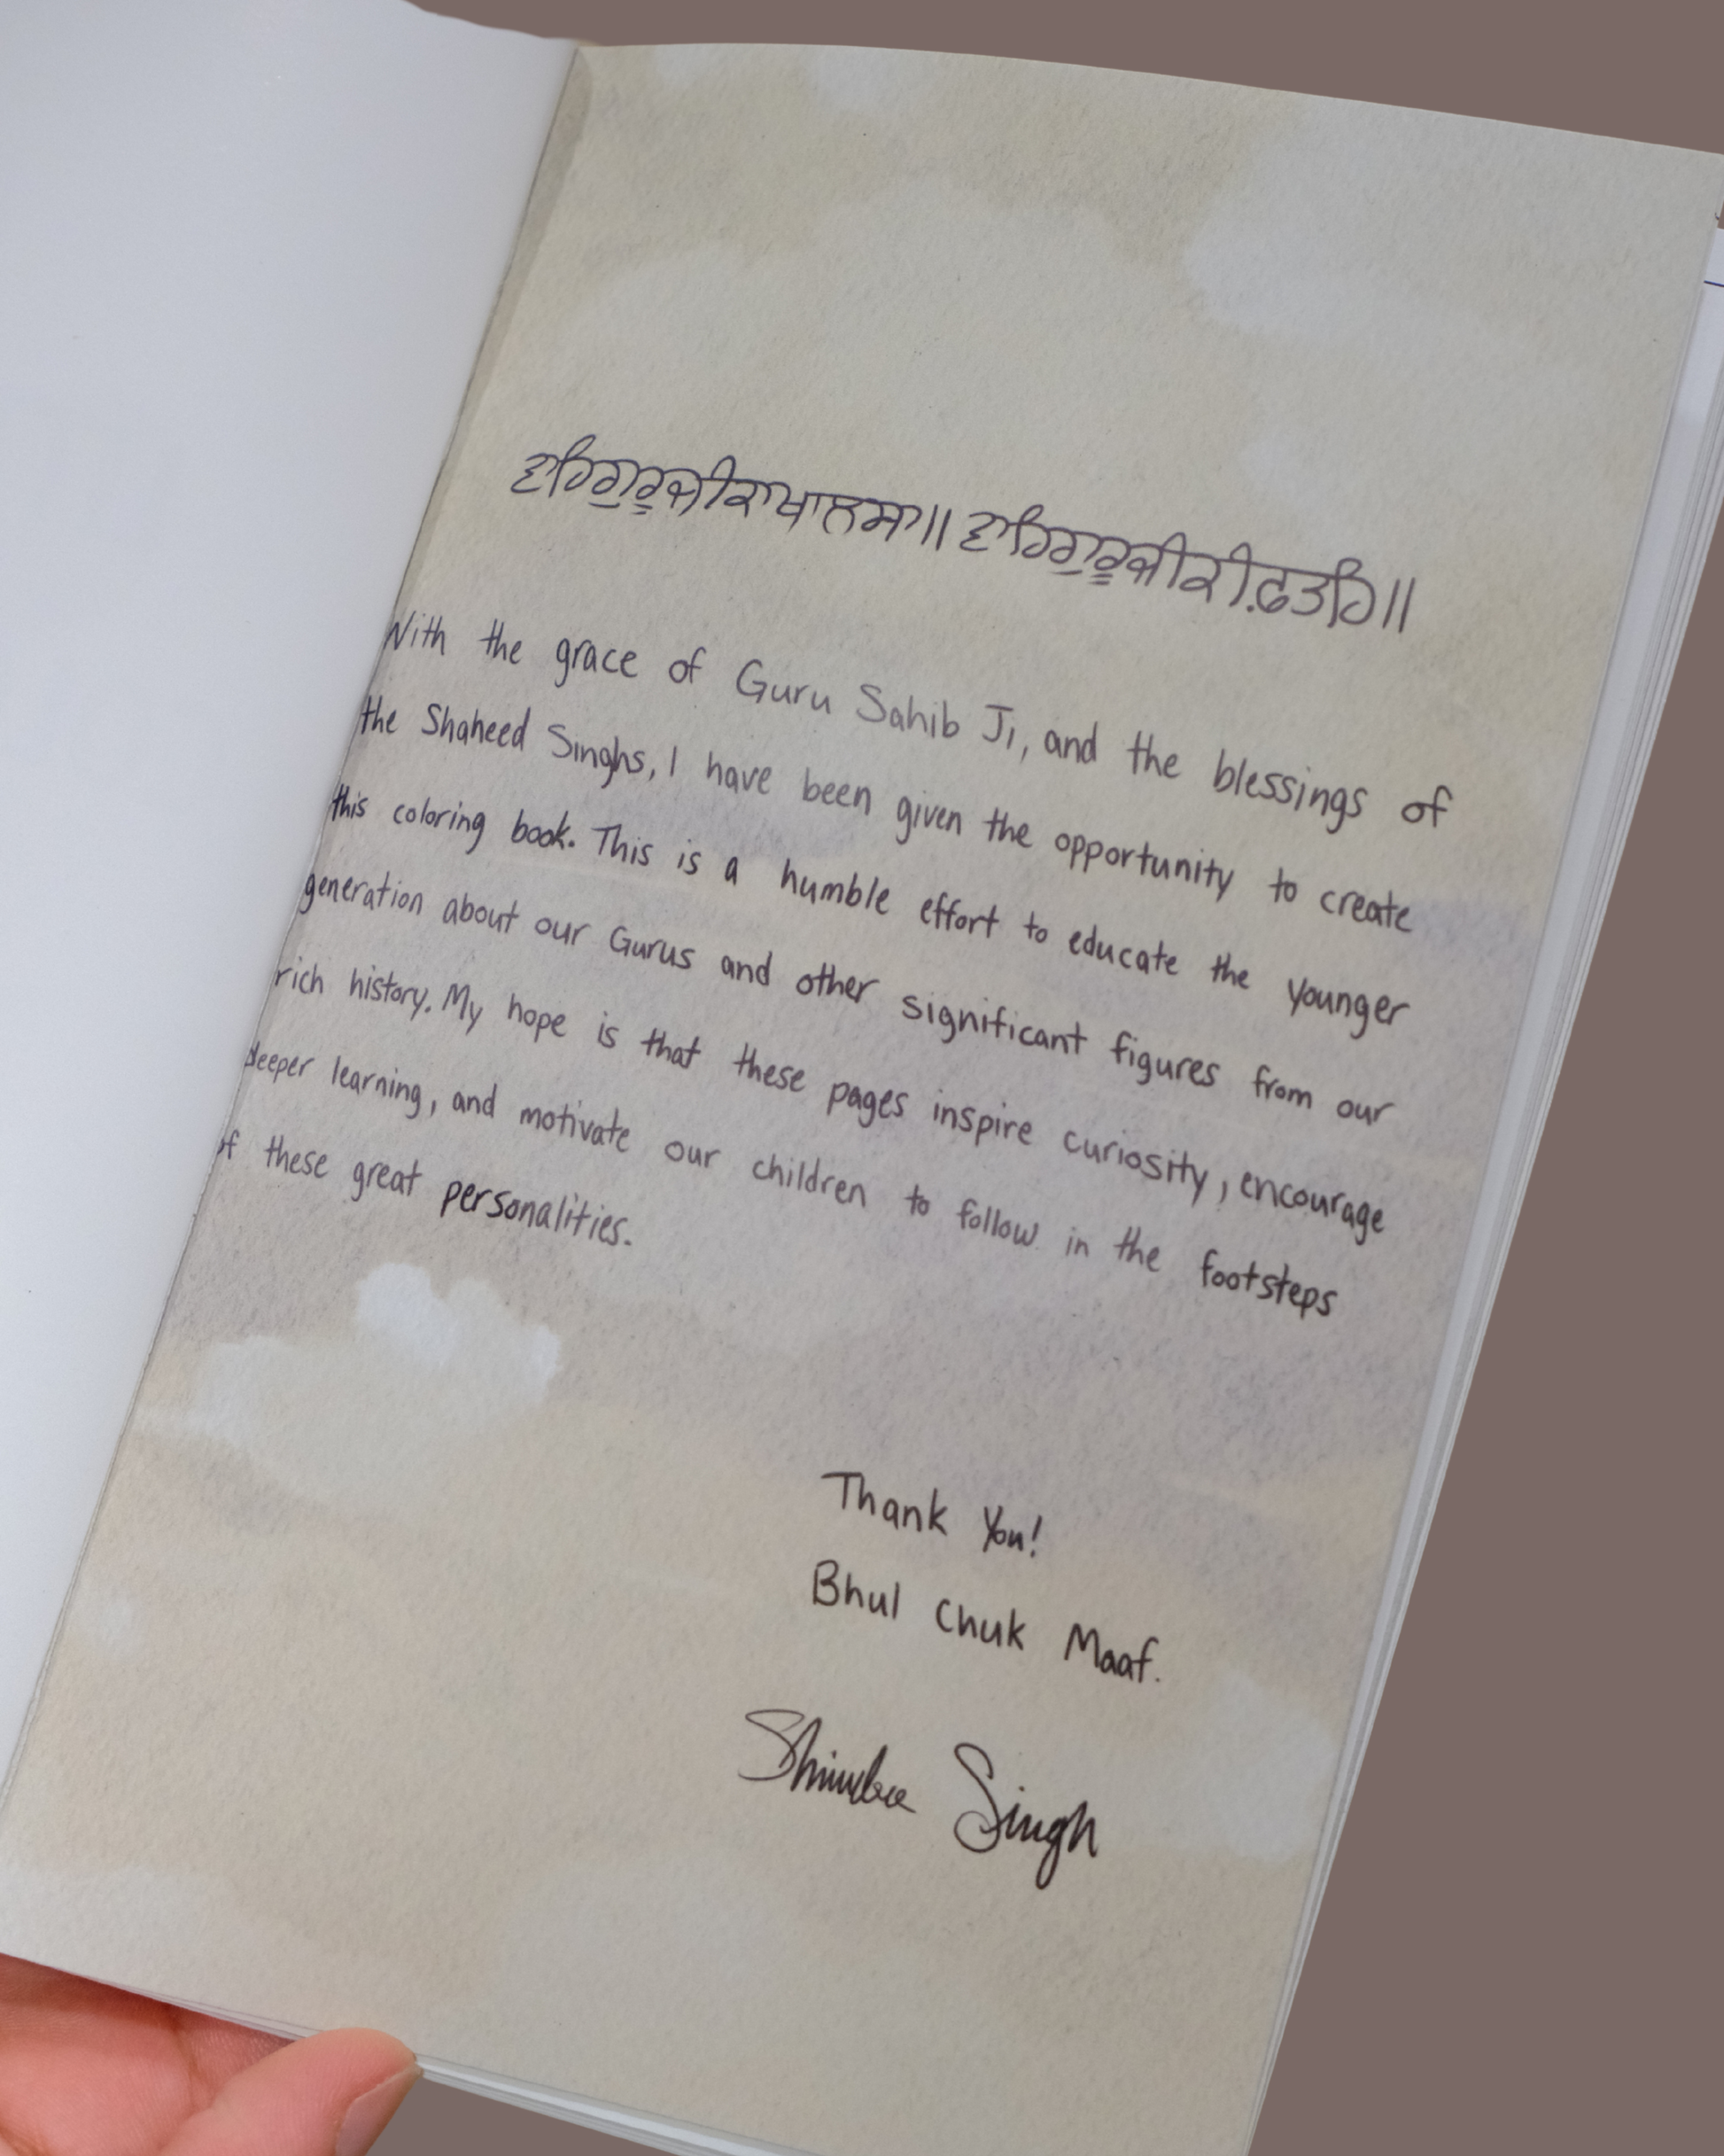 ਵਾਹਿਗੁਰੂਜੀਕਾਖਾਲਸਾ॥ ਵਾਹਿਗੁਰੂਜੀਕੀਫ਼ਤਹਿ॥
With the grace of Guru Sahib Ji, and the blessings of
the Shaheed Singhs, I have been given the opportunity to create
this coloring book. This is a humble effort to educate the younger
generation about our Gurus and other significant figures from our
rich history. My hope is that these pages inspire curiosity, encourage
deeper learning, and motivate our children to follow in the footsteps
of these great personalities.
Thank You!
Bhul Chuk Maaf.
Singh